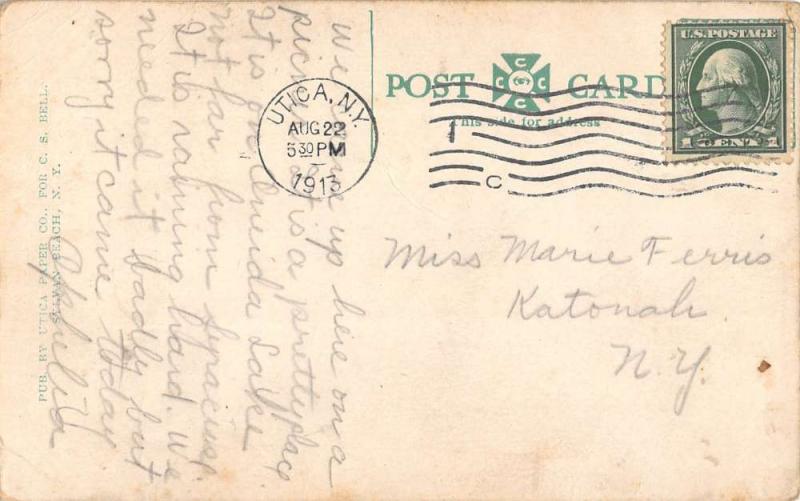 We came up here on a
picnic. It is a pretty place
It is on Oneida Lake
not far from Syracuse.
It is raining hard. We
needed it badly but
sorry it came today
Ophelia
PUB. BY UTICA PAPER CO., FOR C. S. BELL.
SYLVAN BEACH, N. Y.
POST CARD
This side for address
UTICA, N.Y.
AUG 22
5 30 PM
1913
1
C
U.S. POSTAGE
1 CENT 1
Miss Marie Ferris
Katonah
N.Y.